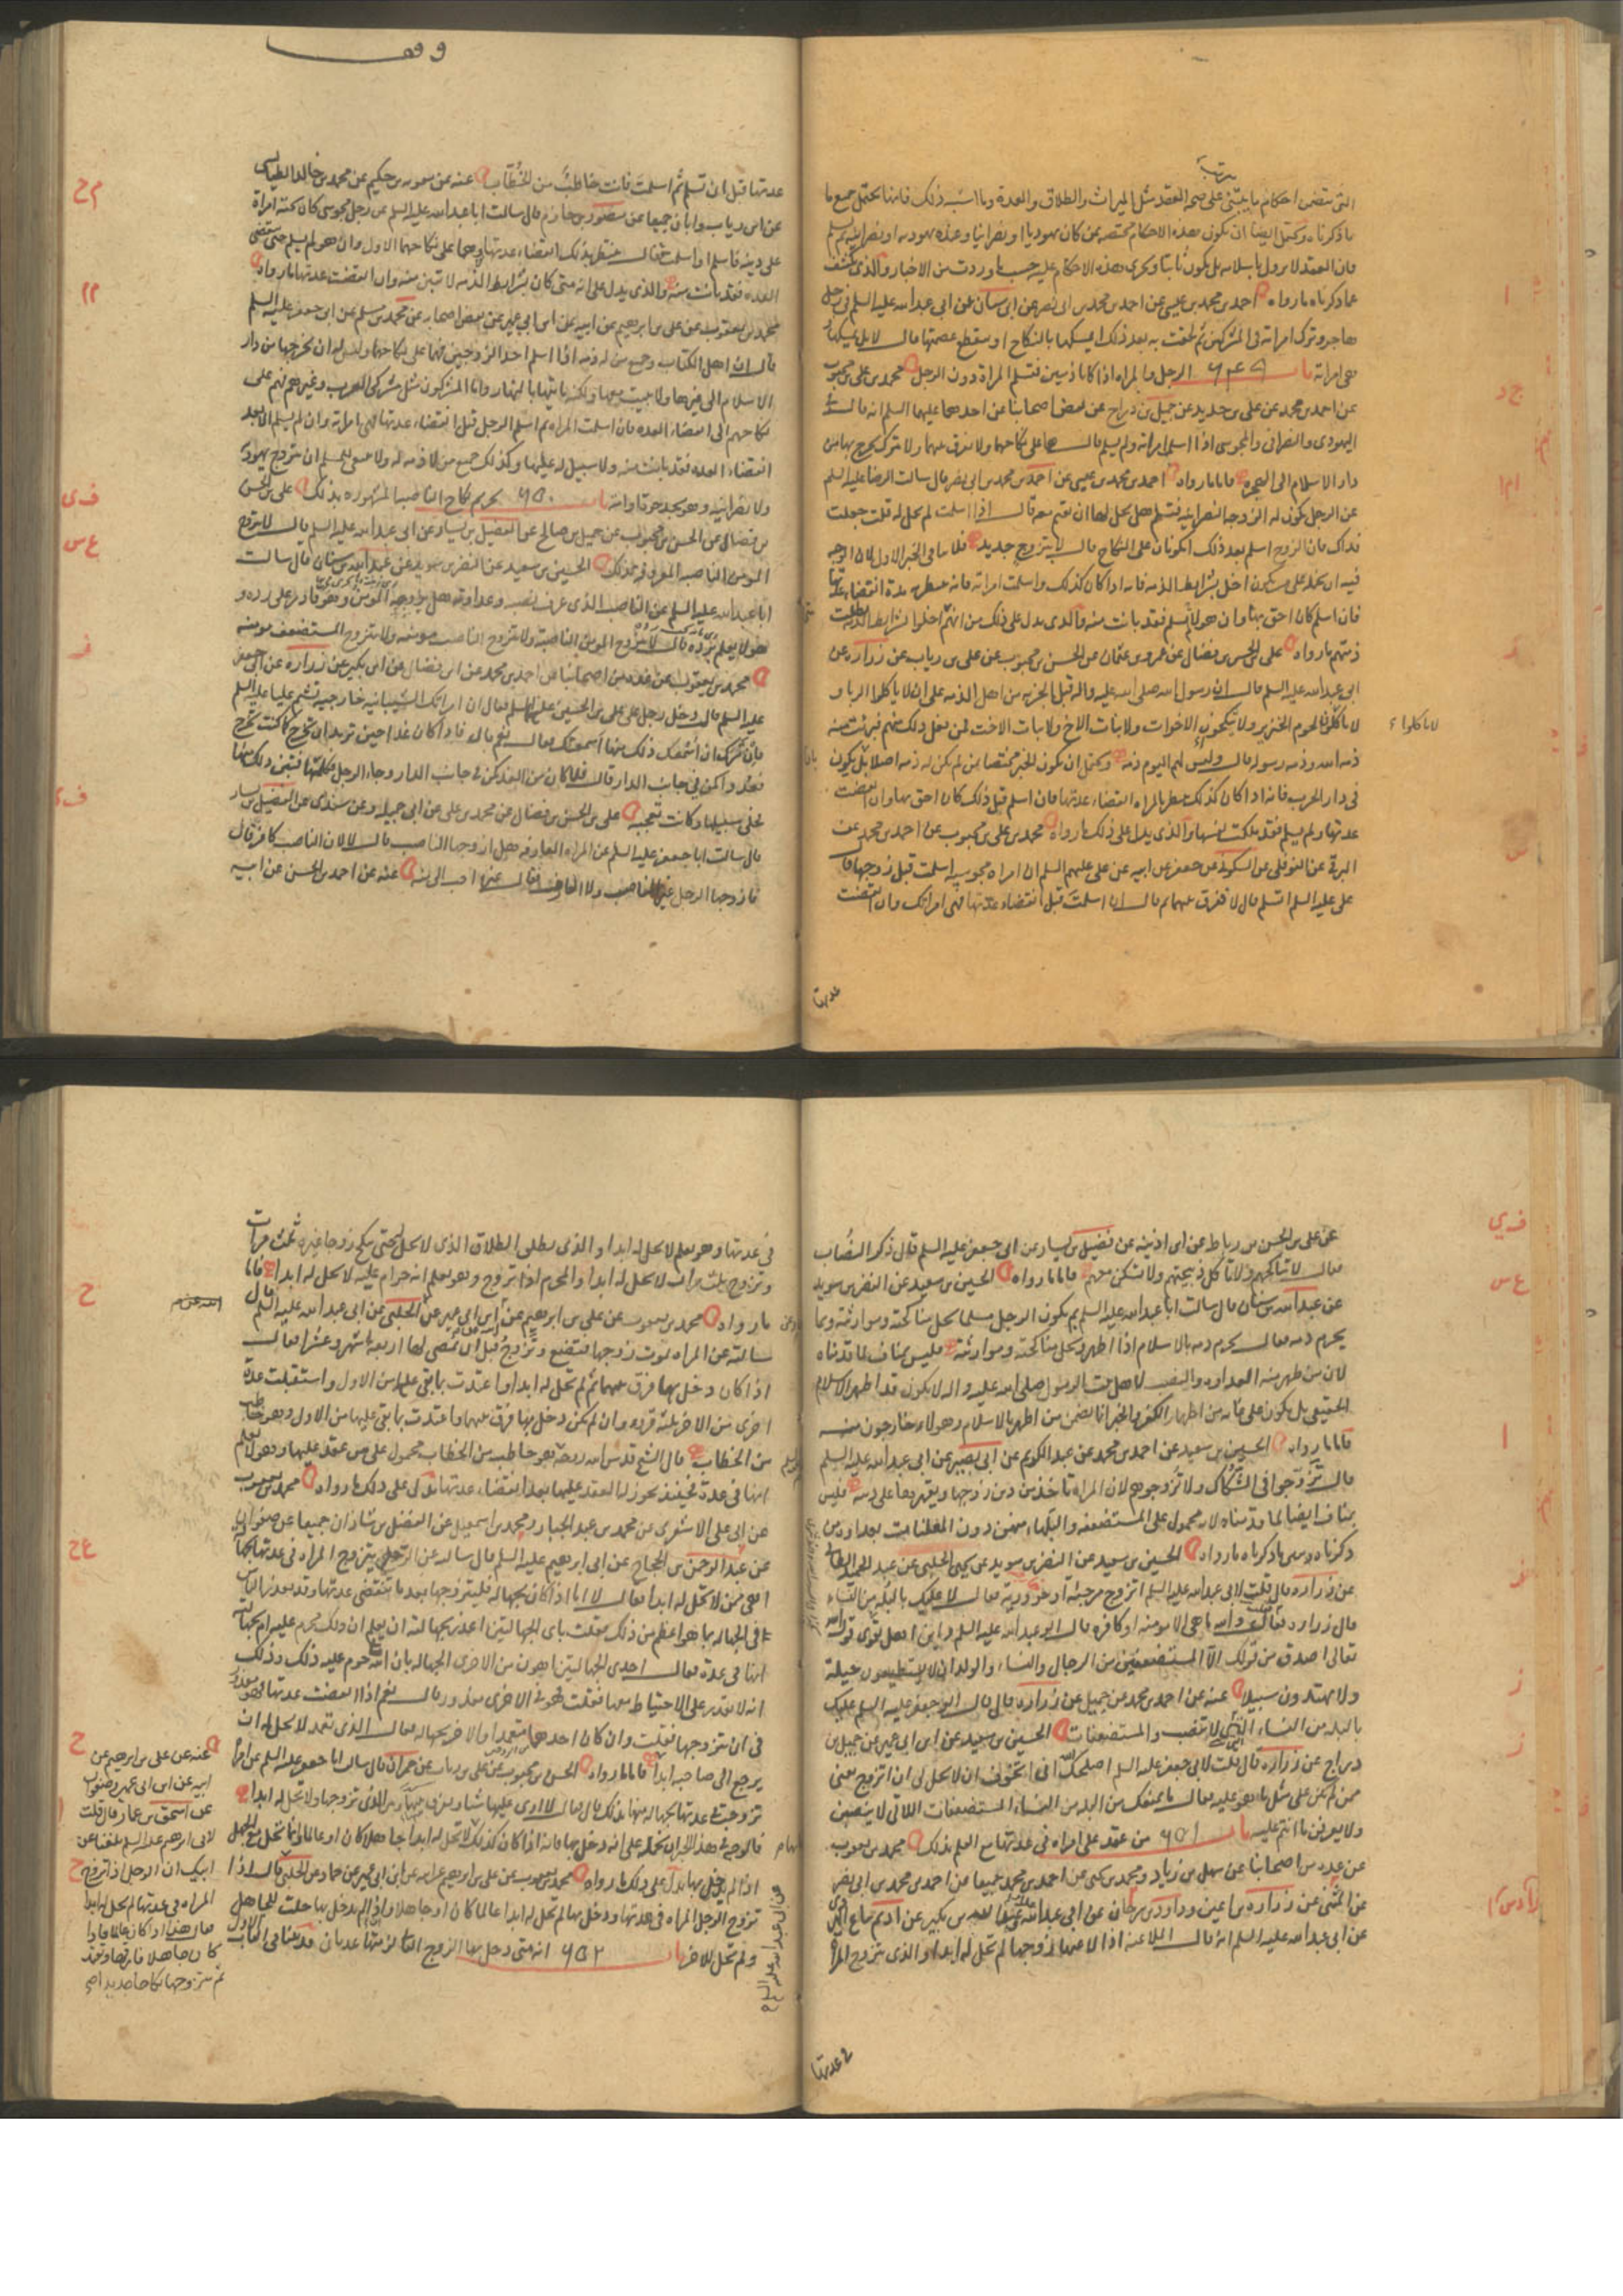 التى تتضمن احكام ما يبتنى على صحة العقد مثل الميراث والطلاق والعدة وما اشبه ذلك فانها تحتمل جميع ما
ذكرناه ويحتمل ايضا ان تكون هذه الاحكام مختصة بمن كان يهوديا او نصرانيا وعنده يهودية او نصرانية ثم اسلم
فان العقد لا يزول باسلامه بل يكون ثابتا وتجرى هذه الاحكام عليه حسب ما وردت من الاخبار والذى يكشف
عما ذكرناه ما رواه احمد بن محمد بن عيسى عن احمد بن محمد بن ابى نصر عن ابن سنان عن ابى عبد الله عليه السلم فى رجل
هاجر وترك امراته فى المشركين ثم لحقت به بعد ذلك ايمسكها بالنكاح او تنقطع عصمتها قال لا بل يمسكها و
هى امراته باب ٦٤٩ الرجل والمراة اذا كانا ذميين فتسلم المراة دون الرجل محمد بن على بن محبوب
عن احمد بن محمد عن على بن حديد عن جميل بن دراج عن بعض اصحابنا عن احدهما عليهما السلم انه قال فى
اليهودى والنصرانى والمجوسى اذا اسلمت امراته ولم يسلم قال هما على نكاحهما ولا يفرق بينهما ولا يترك يخرج بها من
دار الاسلام الى الهجرة فاما ما رواه احمد بن محمد بن عيسى عن احمد بن محمد بن ابى نصر قال سالت الرضا عليه السلم
عن الرجل تكون له الزوجة النصرانية فتسلم هل يحل لها ان تقيم معه قال اذا اسلمت لم تحل له قلت جعلت
فداك فان الزوج اسلم بعد ذلك ايكونان على النكاح قال لا بتزويج جديد فلا ينافى الخبر الاول لان الوجه
فيه ان نحمله على من يكون اخل بشرايط الذمة فانه اذا كان كذلك واسلمت امراته فانه ينتظر مدة انقضاء عدتها
فان اسلم كان احق بها وان هو لم يسلم فقد بانت منه والذى يدل على ذلك من انهم اخلوا بشرايط الذمة بطلت
ذمتهم ما رواه على بن الحسن بن فضال عن عمرو بن عثمان عن الحسن بن محبوب عن على بن رياب عن زرارة عن
ابى عبد الله عليه السلم قال ان رسول الله صلى الله عليه واله قبل الجزية من اهل الذمة على ان لا ياكلوا الربا و
لا ياكلوا لحوم الخنزير ولا ينكحون الاخوات ولا بنات الاخ ولا بنات الاخت فمن فعل ذلك منهم فبرئت منه
ذمة الله وذمة رسوله قال وليس لهم اليوم ذمة ويحتمل ان يكون الخبر مختصا بمن لم يكن له ذمة اصلا بل يكون
فى دار الحرب فانه اذا كان كذلك ينتظر بالمراة انقضاء عدتها فان اسلم قبل ذلك كان احق بها وان انقضت
عدتها ولم يسلم فقد ملكت نفسها والذى يدل على ذلك ما رواه محمد بن على بن محبوب عن احمد بن محمد عن
البرقى عن النوفلى عن السكونى عن جعفر عن ابيه عن على عليهم السلم ان امراة مجوسية اسلمت قبل زوجها قال
على عليه السلم اتسلم قال لا ففرق بينهما ثم قال ان اسلمت قبل انقضاء عدتها فهى امراتك وان انقضت
عدتها
وقف
عدتها قبل ان تسلم ثم اسلمت فانت خاطب من الخطاب عنه عن معوية بن حكيم عن محمد بن خالد الطيالسى
عن ابن رياب وابان جميعا عن منصور بن حازم قال سالت ابا عبد الله عليه السلم عن رجل مجوسى كان تحته امراة
على دينه فاسلم او اسلمت قال ينتظر بذلك انقضاء عدتها وهما على نكاحهما الاول وان هو لم يسلم حتى تنقضى
العدة فقد بانت منه والذى يدل على انه متى كان بشرايط الذمة لا تبين منه وان انقضت عدتها ما رواه
محمد بن يعقوب عن على بن ابرهيم عن ابيه عن ابن ابى عمير عن بعض اصحابه عن محمد بن مسلم عن ابى جعفر عليه السلم
قال ان اهل الكتاب وجميع من له ذمة اذا اسلم احد الزوجين فهما على نكاحهما وليس له ان يخرجها من دار
الاسلام الى غيرها ولا يبيت معها ولكنه ياتيها بالنهار واما المشركون مثل مشركى العرب وغيرهم فهم على
نكاحهم الى انقضاء العدة فان اسلمت المراة ثم اسلم الرجل قبل انقضاء عدتها فهى امراته وان لم يسلم الا بعد
انقضاء العدة فقد بانت منه ولا سبيل له عليها وكذلك جميع من لا ذمة له ولا ينبغى للمسلم ان يتزوج يهودية
ولا نصرانية وهو يجد حرة او امة باب ٦٥٠ تحريم نكاح الناصبة المشهورة بذلك على بن الحسن
بن فضال عن الحسن بن محبوب عن جميل بن صالح عن الفضيل بن يسار عن ابى عبد الله عليه السلم قال لا يتزوج
المومن الناصبة المعروفة بذلك الحسين بن سعيد عن النضر بن سويد عن عبد الله بن سنان قال سالت
ابا عبد الله عليه السلم عن الناصب الذى عرف نصبه وعداوته هل يزوجه المومن وهو قادر على رده و
هو لا يعلم برده قال لا يتزوج المومن الناصبة ولا يتزوج الناصب مومنة ولا يتزوج المستضعف مومنة
محمد بن يعقوب عن عدة من اصحابنا عن احمد بن محمد عن ابن فضال عن ابن بكير عن زرارة عن ابى جعفر
عليه السلم قال دخل رجل على على بن الحسين عليهما السلم فقال ان امراتك الشيبانية خارجية تشتم عليا عليه السلم
فان سرك ان اسمعك ذلك منها اسمعتك فقال نعم قال فاذا كان غدا حين تريد ان تخرج كما كنت تخرج
فعد واكمن فى جانب الدار قال فلما كان من الغد كمن فى جانب الدار وجاء الرجل فكلمها فتبين ذلك منها
فخلى سبيلها وكانت تعجبه على بن الحسن بن فضال عن محمد بن على عن ابى جميلة عن سندى عن الفضيل بن يسار
قال سالت ابا جعفر عليه السلم عن المراة العارفة هل ازوجها الناصب قال لا لان الناصب كافر قال
فازوجها الرجل غير الناصب ولا العارف فقال غيره احب الى منه عنه عن احمد بن الحسن عن ابيه
عن على بن الحسن بن رباط عن ابن اذينة عن فضيل بن يسار عن ابى جعفر عليه السلم قال ذكر النصاب
فقال لا تناكحهم ولا تاكل ذبيحتهم ولا تسكن معهم فاما ما رواه الحسين بن سعيد عن النضر بن سويد
عن عبد الله بن سنان قال سالت ابا عبد الله عليه السلم بم يكون الرجل مسلما تحل مناكحته وموارثته وبما
يحرم دمه فقال يحرم دمه بالاسلام اذا اظهر وتحل مناكحته وموارثته فليس بمناف لما قدمناه
لان من ظهر منه العداوة والنصب لاهل بيت الرسول صلى الله عليه واله لا يكون قد اظهر الاسلام
الحقيقى بل يكون على غاية من اظهار الكفر والخبر انما تضمن من اظهر الاسلام وهولاء خارجون منه
فاما ما رواه الحسين بن سعيد عن احمد بن محمد عن عبد الكريم عن ابى بصير عن ابى عبد الله عليه السلم
قال تزوجوا فى الشكاك ولا تزوجوهم لان المراة تاخذ من دين زوجها ويقهرها على دينه فليس
بمناف ايضا لما قدمناه لانه محمول على المستضعفة والبلهاء منهن دون المعلنات بعداوة من
ذكرناه ما رواه الحسين بن سعيد عن النضر بن سويد عن يحيى الحلبى عن عبد الحميد الطائى
عن زرارة قال قلت لابى عبد الله عليه السلم اتزوج مرجئة او حرورية قال لا عليك بالبله من النساء
قال زرارة فقلت والله ما هى الا مومنة او كافرة قال ابو عبد الله عليه السلم واين اهل تقوى قول الله
تعالى اصدق من قولك الا المستضعفين من الرجال والنساء والولدان لا يستطيعون حيلة
ولا يهتدون سبيلا عنه عن احمد بن محمد عن جميل عن زرارة قال قال ابو جعفر عليه السلم عليك
بالبله من النساء التى لا تنصب والمستضعفات الحسين بن سعيد عن ابن ابى عمير عن جميل بن
دراج عن زرارة قال قلت لابى جعفر عليه السلم اصلحك الله انى اخوف ان لا يحل لى ان اتزوج يعنى
ممن لم يكن على مثل ما هو عليه فقال ما يمنعك من البله من النساء المستضعفات اللاتى لا ينصبن
ولا يعرفن ما انتم عليه باب ٦٥١ من عقد على امراة فى عدتها مع العلم بذلك محمد بن يعقوب
عن عدة من اصحابنا عن سهل بن زياد ومحمد بن يحيى عن احمد بن محمد جميعا عن احمد بن محمد بن ابى نصر
عن المثنى عن زرارة بن اعين وداود بن سرحان عن ابى عبد الله وعن عبد الله بن بكير عن اديم بياع الهروى
عن ابى عبد الله عليه السلم انه قال الملاعنة اذا لاعنها زوجها لم تحل له ابدا والذى يتزوج المراة
فى عدتها
فى عدتها وهو يعلم لا تحل له ابدا والذى يطلق الطلاق الذى لا تحل له حتى تنكح زوجا غيره ثلث مرات
وتزوج ثلث مرات لا تحل له ابدا والمحرم اذا تزوج وهو يعلم انه حرام عليه لا تحل له ابدا فاما
ما رواه محمد بن يعقوب عن على بن ابرهيم عن ابيه عن ابن ابى عمير عن الحلبى عن ابى عبد الله عليه السلم قال
سالته عن المراة يموت زوجها فتضع وتزوج قبل ان تمضى لها اربعة اشهر وعشرا فقال
اذا كان دخل بها فرق بينهما ثم لم تحل له ابدا واعتدت بما بقى عليها من الاول واستقبلت عدة
اخرى من الاخر ثلثة قروء وان لم يكن دخل بها فرق بينهما واعتدت بما بقى عليها من الاول وهو خاطب
من الخطاب قال الشيخ قدس الله روحه فهو خاطب من الخطاب محمول على من عقد عليها وهو لا يعلم
انها فى عدة فحينئذ يجوز له العقد عليها بعد انقضاء عدتها يدل على ذلك ما رواه محمد بن يعقوب
عن ابى على الاشعرى عن محمد بن عبد الجبار ومحمد بن اسمعيل عن الفضل بن شاذان جميعا عن صفوان
عن عبد الرحمن بن الحجاج عن ابى ابرهيم عليه السلم قال سالته عن الرجل يتزوج المراة فى عدتها بجهالة
اهى ممن لا تحل له ابدا فقال لا اما اذا كان بجهالة فليتزوجها بعد ما تنقضى عدتها وقد يعذر الناس
فى الجهالة بما هو اعظم من ذلك فقلت باى الجهالتين اعذر بجهالته ان يعلم ان ذلك محرم عليه ام بجهالته
انها فى عدة فقال احدى الجهالتين اهون من الاخرى الجهالة بان الله حرم عليه ذلك وذلك
انه لا يقدر على الاحتياط معها فقلت فهو فى الاخرى معذور قال نعم اذا انقضت عدتها فهو معذور
فى ان يتزوجها فقلت وان كان احدهما متعمدا والاخر بجهالة فقال الذى تعمد لا يحل له ان
يرجع الى صاحبه ابدا فاما ما رواه الحسن بن محبوب عن على بن رياب عن حمران قال سالت ابا جعفر عليه السلم عن امراة
تزوجت فى عدتها بجهالة منها بذلك قال فقال لا ارى عليها شيئا ويفرق بينها وبين الذى تزوجها ولا تحل له ابدا
فالوجه فى هذا الخبر ان نحمله على انه دخل بها فانه اذا كان كذلك لا تحل له ابدا جاهلا كان او عالما وانما تحل مع الجهل
اذا لم يدخل بها يدل على ذلك ما رواه محمد بن يعقوب عن على بن ابرهيم عن ابيه عن ابن ابى عمير عن حماد عن الحلبى قال اذا
تزوج الرجل المراة فى عدتها ودخل بها لم تحل له ابدا عالما كان او جاهلا وان لم يدخل بها حلت للجاهل
ولم تحل للاخر باب ٦٥٢ انه متى دخل بها الزوج الثانى لزمتها عدتان
عن ابى عبد الله عليه السلم
عنه عن على بن ابرهيم عن
ابيه عن ابن ابى عمير وصفوان
عن اسحق بن عمار قال قلت
لابى ابرهيم عليه السلم بلغنا عن
ابيك ان الرجل اذا تزوج
المراة فى عدتها لم تحل له ابدا
فقال هذا اذا كان عالما فاذا
كان جاهلا فارقها وتعتد
ثم يتزوجها نكاحا جديدا صح